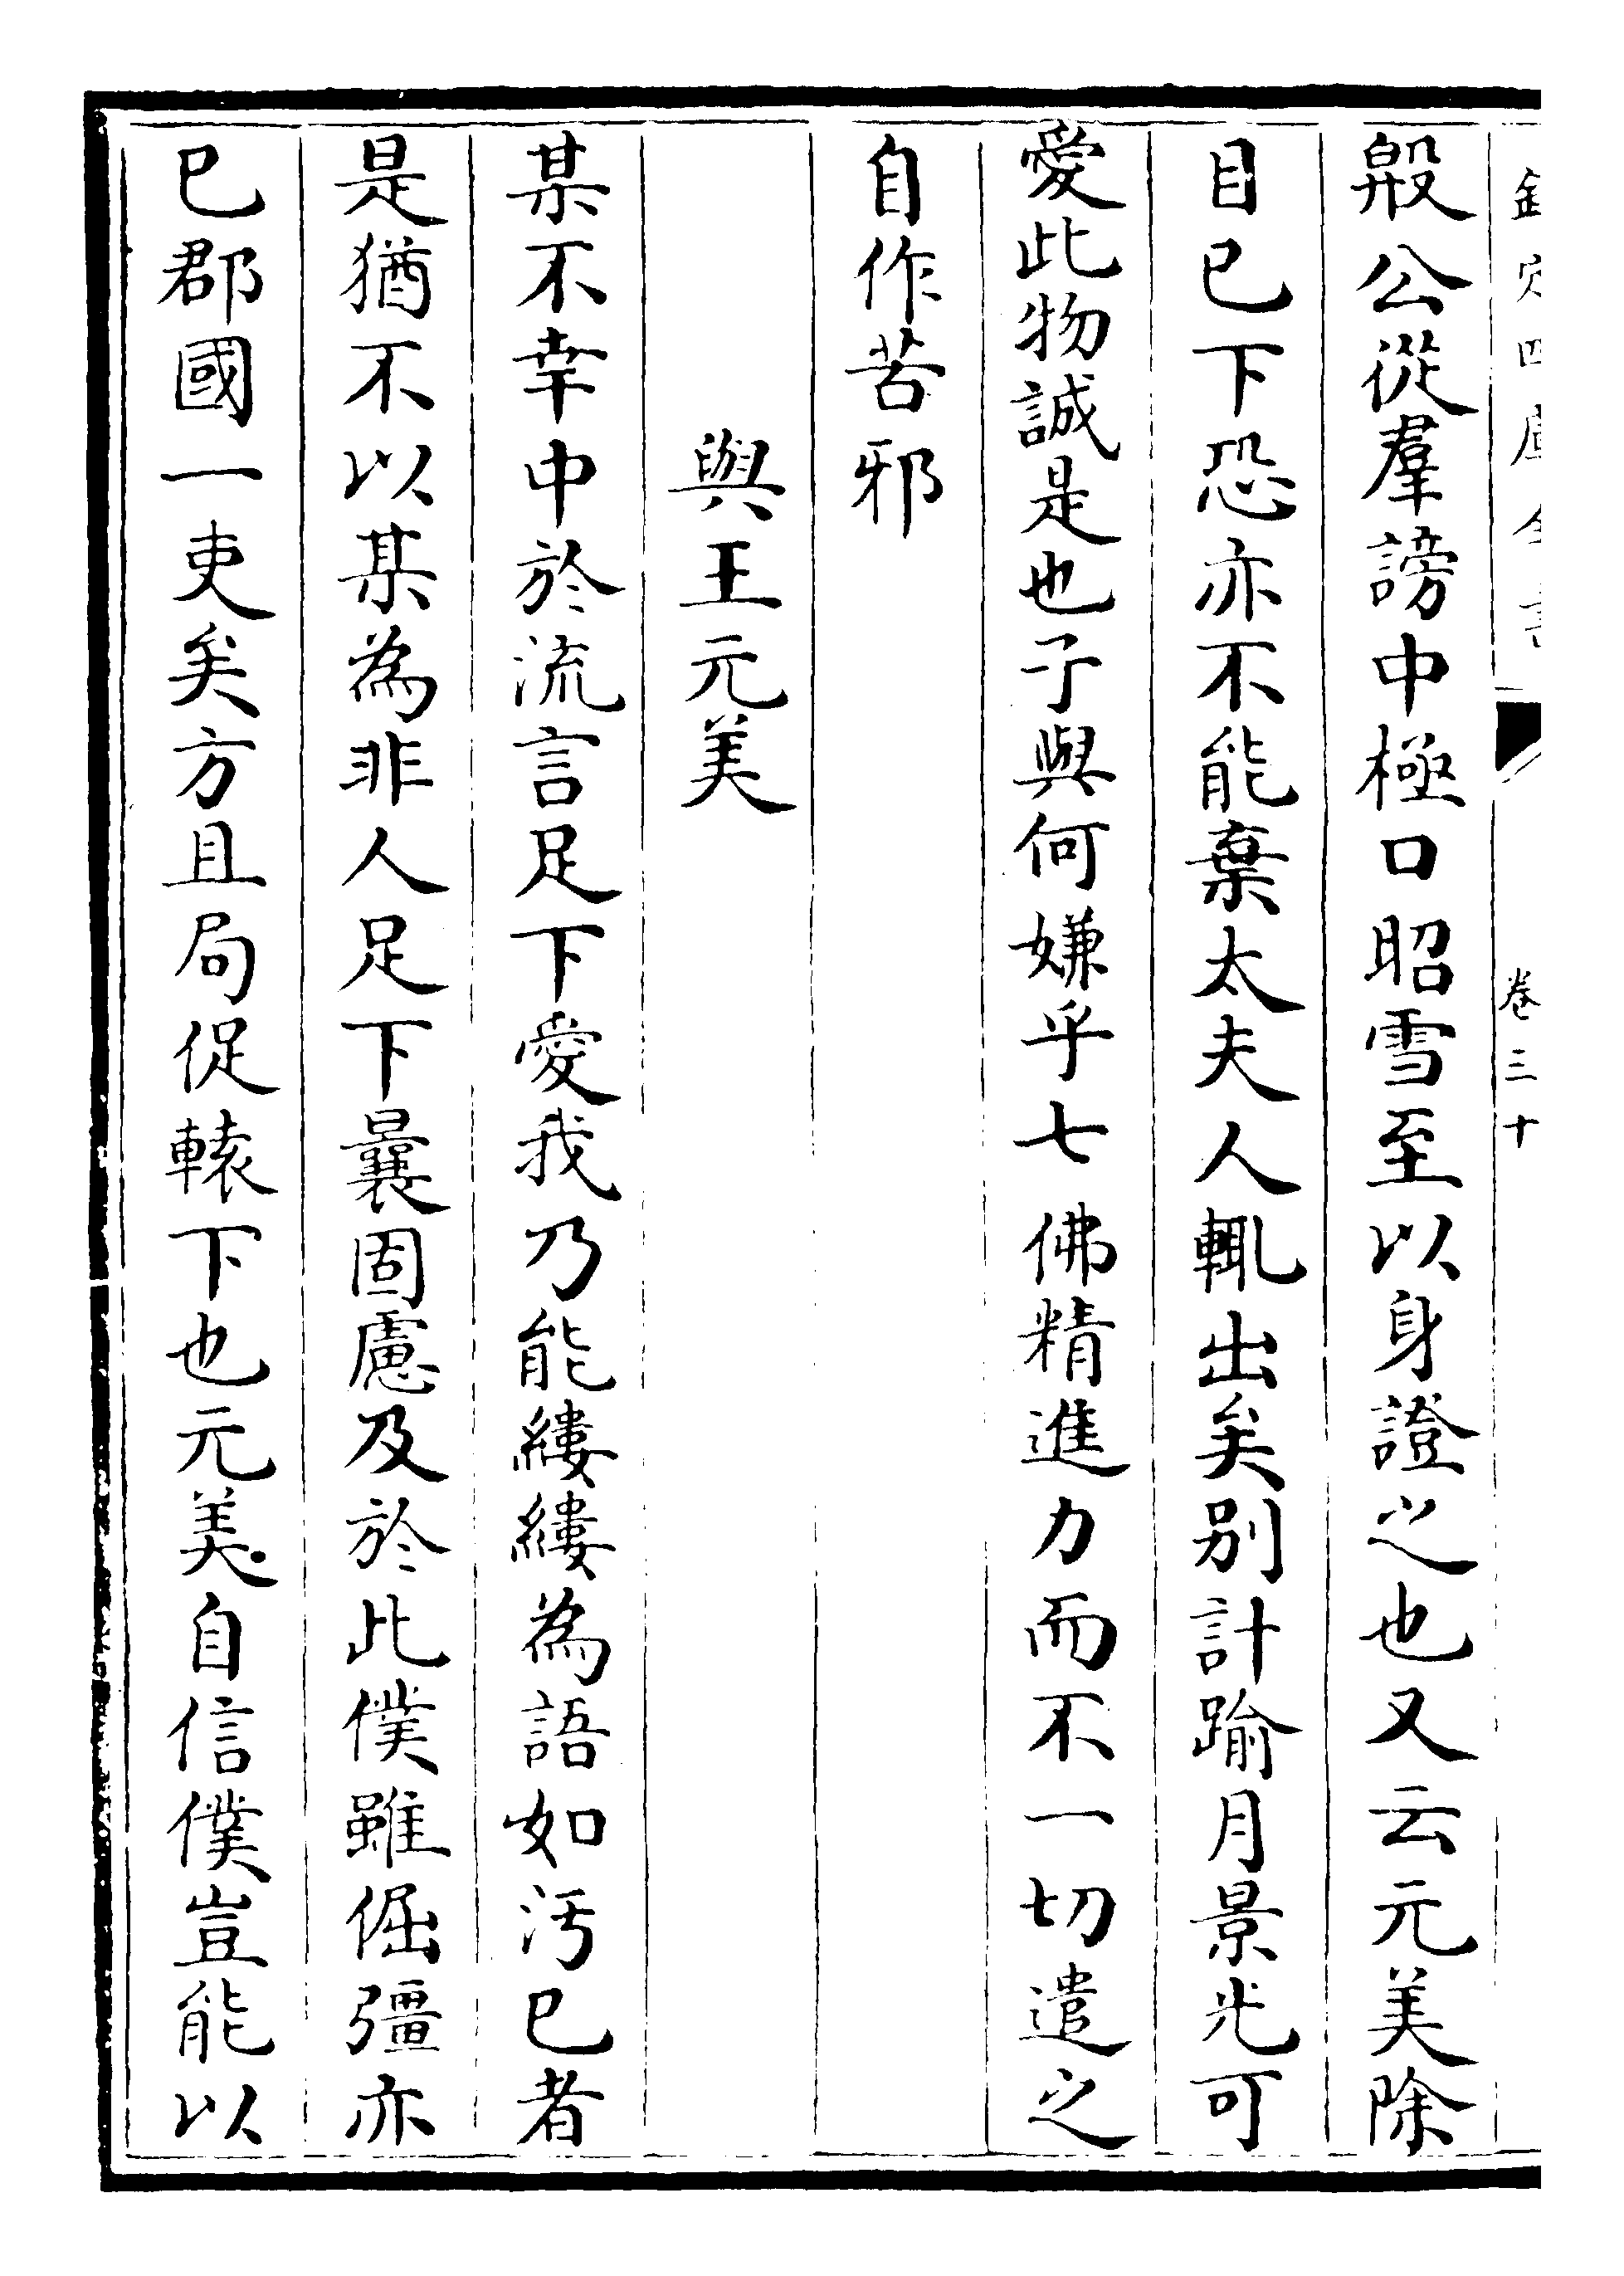 欽定四庫全書 卷三十
殿公從羣謗中極口昭雪至以身證之也又云元美除
目已下恐亦不能棄太夫人輒出矣别計踰月景光可
愛此物誠是也子與何嫌乎七佛精進力而不一切遣之
自作苦邪
與王元美
某不幸中於流言足下愛我乃能縷縷為語如汚已者
是猶不以某為非人足下曩固慮及於此僕雖倔彊亦
已郡國一吏矣方且局促轅下也元美自信僕豈能以